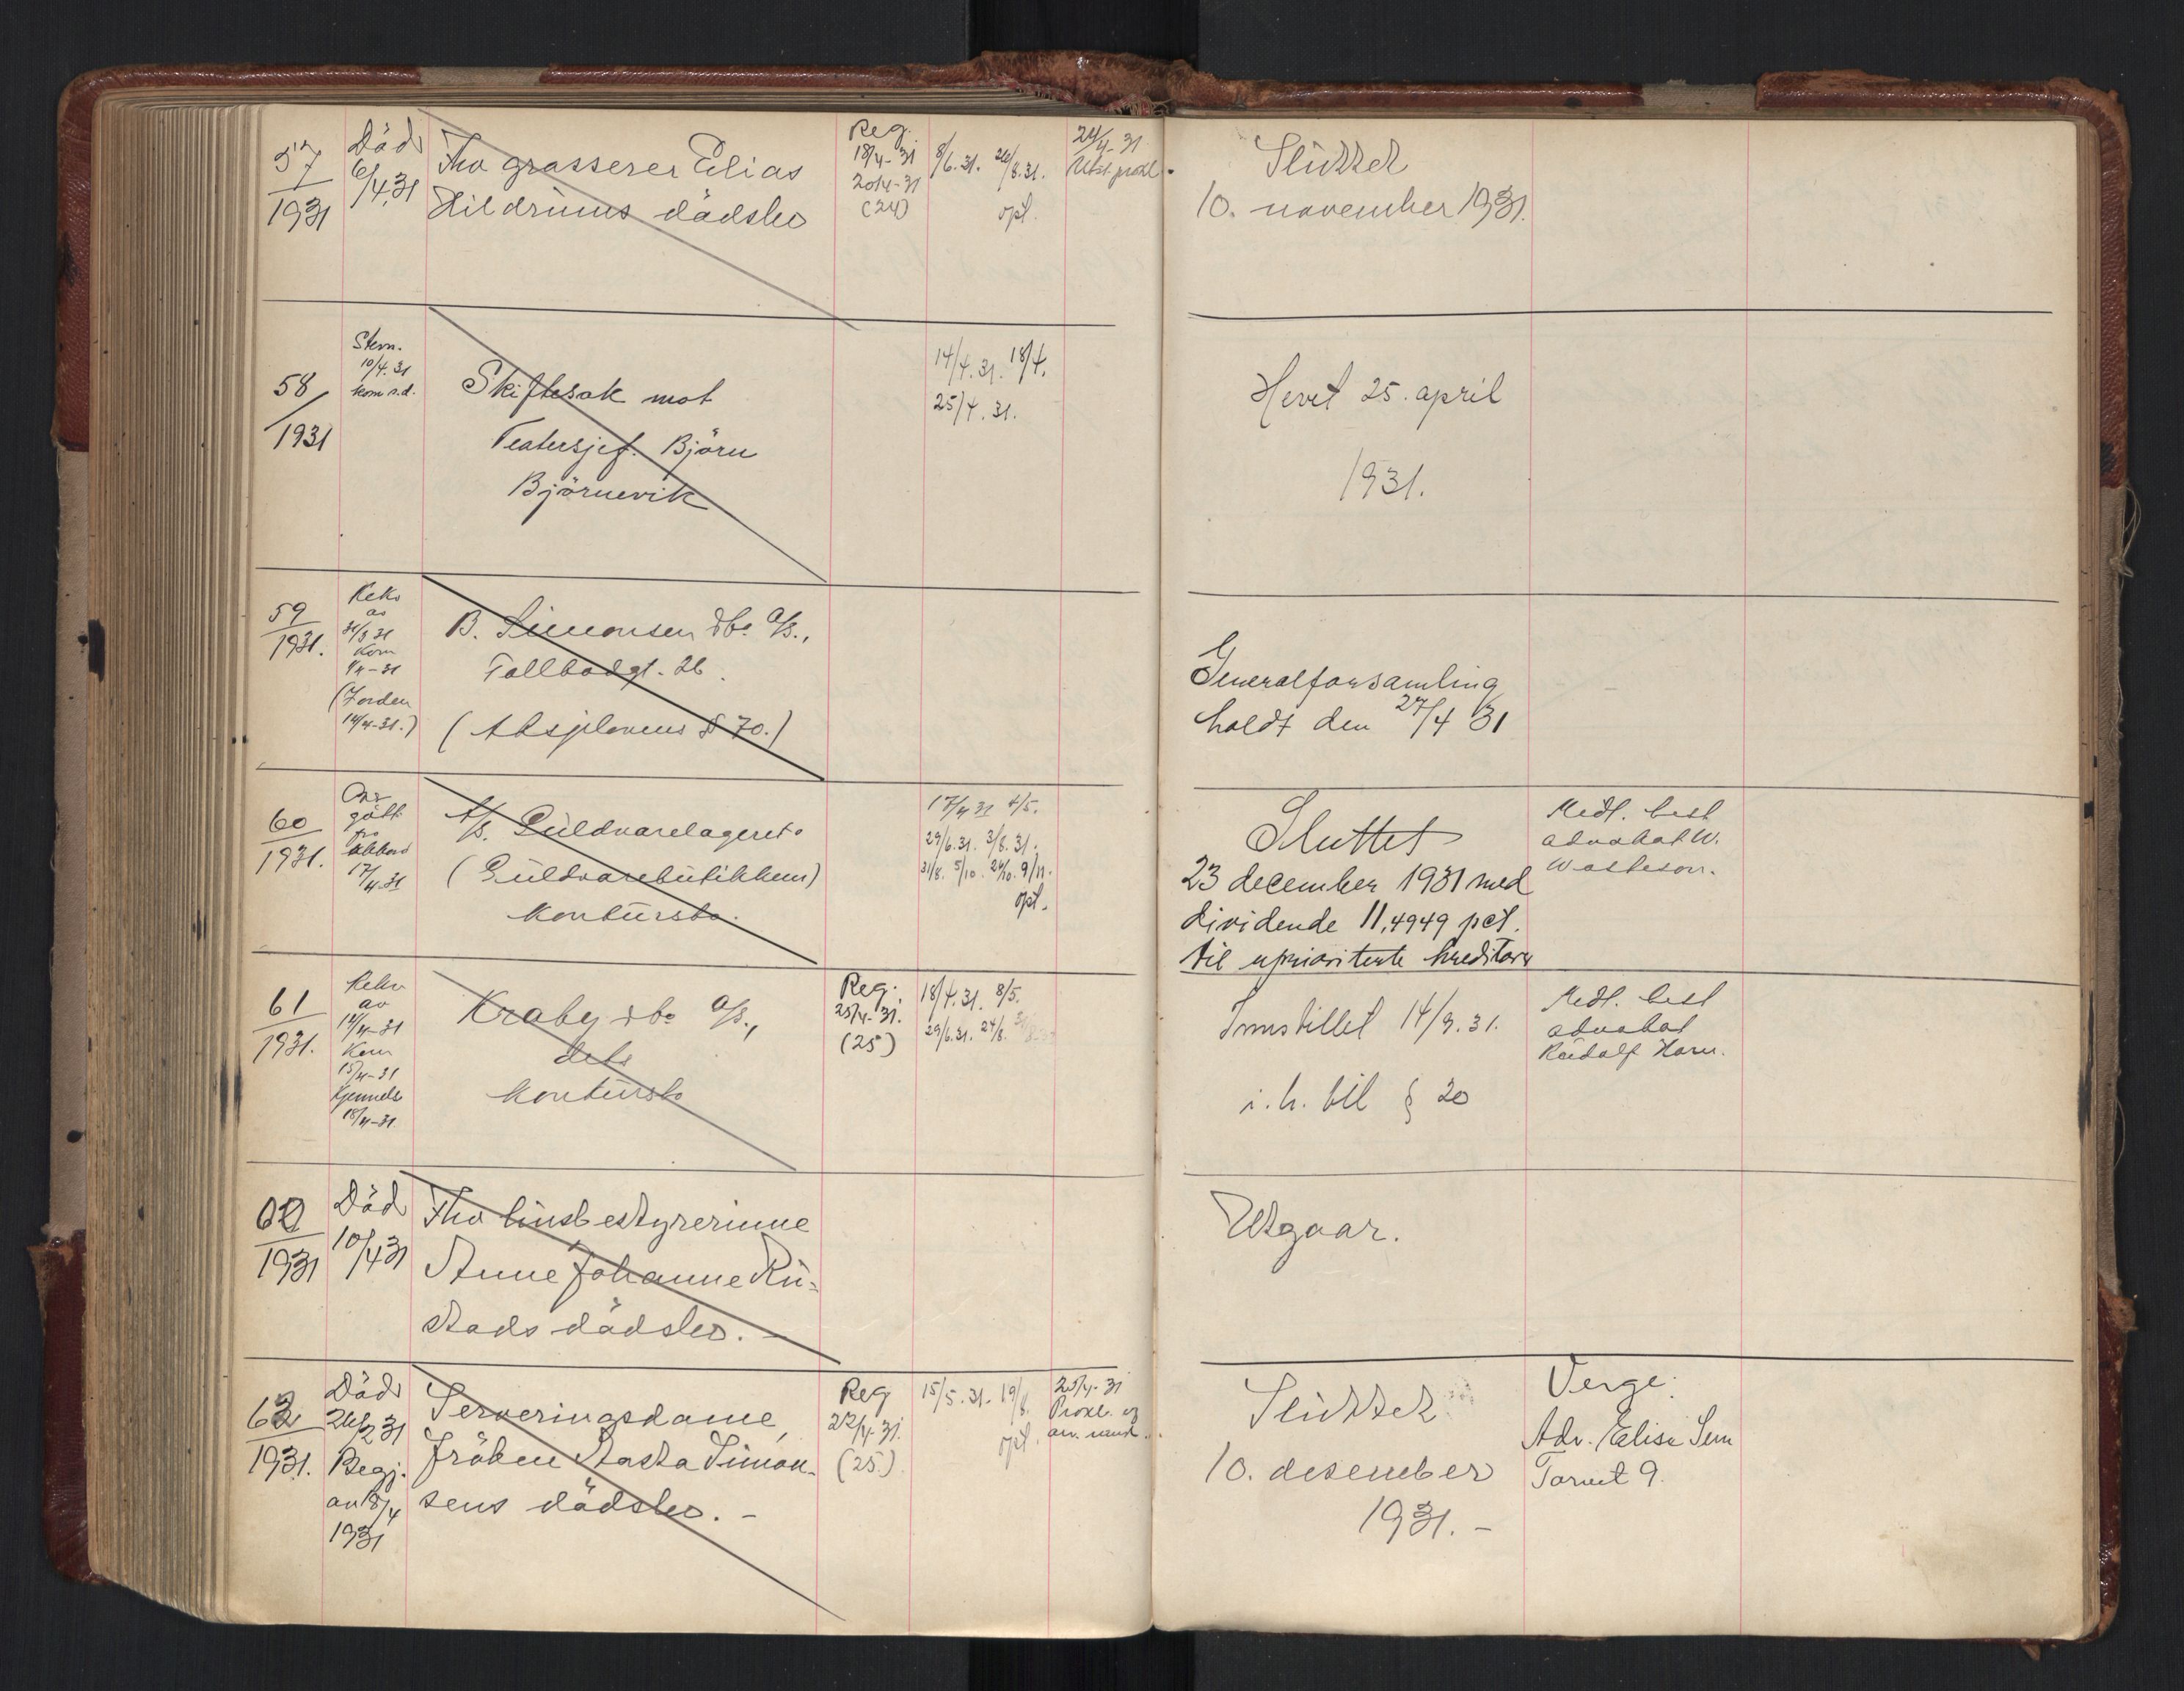 57
1931
Död
6/4 31
Fhv grosserer Elias
Hildrums dödsbo
Reg.
18/4-31
20/4-31
(24)
8/6.31. 26/8.31.
opt.
24/4-31
Utst. prokl.
Sluttet
10. november 1931.
58
1931
Stevn.
10/4.31
kom s.d.
Skiftesak mot
Teatersjef. Björn
Björnevik
14/4.31. 18/4.
25/4.31.
Hevet 25. april
1931.
59
1931.
Rekv
av
31/3 31
Kom
1/4-31
(Jorden
14/4-31.)
B. Simonsen & Co A/S.,
Tollbodgt. 26.
(Aksjelovens § 70.)
Generalforsamling
holdt den 27/4 31
60
1931.
Over
gått
fra
akkord
17/4-31
A/S. Gullvarelagerets
(Gullvarebutikken)
konkursbo.
17/4 31 4/5.
29/6.31. 3/8.31.
31/8. 5/10. 26/10. 9/11.
opt.
Sluttet
23 december 1931 med
dividende 11,4949 pct.
til uprioriterte kreditorer
Medt. best
advokat W.
Wasteson.
61
1931.
Rekv
av
14/4-31
Kom
15/4-31
Kjennels
18/4-31.
Kraby & Co A/S.,
dets
konkursbo
Reg.
25/4-31.
(25)
18/4.31. 8/5.
29/6.31. 24/8.
Innstillet 14/9.31.
i. h. til § 20
Medt. best
advokat
Rudolf Horn.
62
1931
Död
10/4 31
Fhv husbestyrerinne
Anne Johanne Ru-
stads dödsbo. -
Utgaar.
63
1931.
Död
26/2 31
Begj.
av 18/4
1931
Serveringsdame,
fröken Aasta Simon-
sens dödsbo. -
Reg
22/4-31.
(25.)
15/5.31. 19/8.
opt.
25/4-31
Prokl. og
arv. innk.
Sluttet
10. desember
1931. -
Verge:
Adv. Elise Sem
Torvet 9.